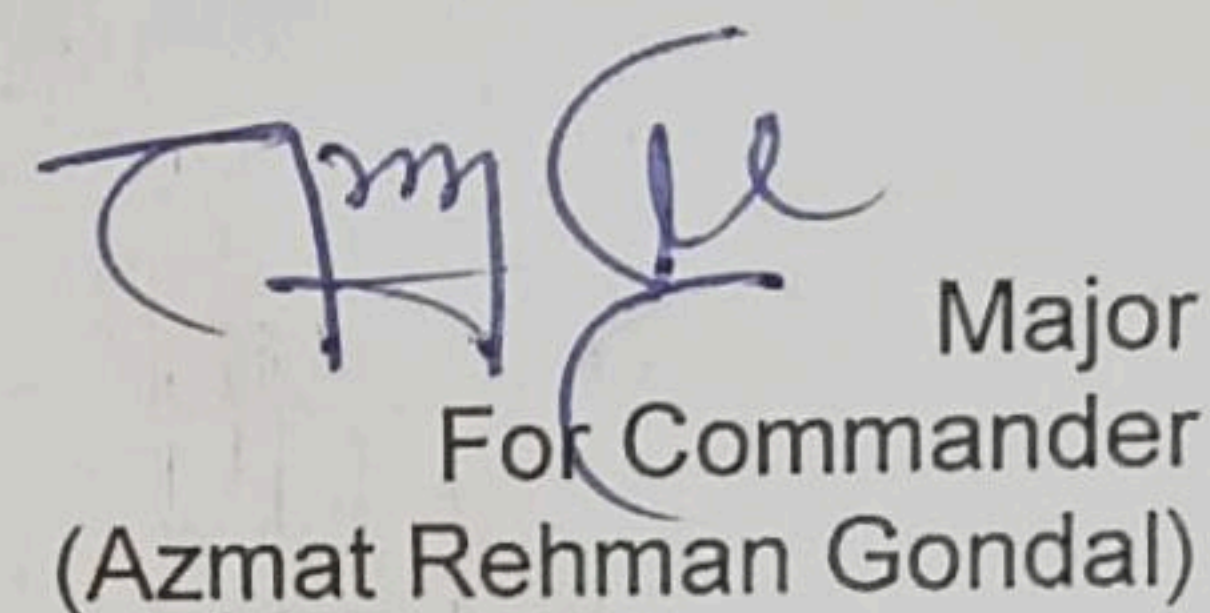 Major
For Commander
(Azmat Rehman Gondal)